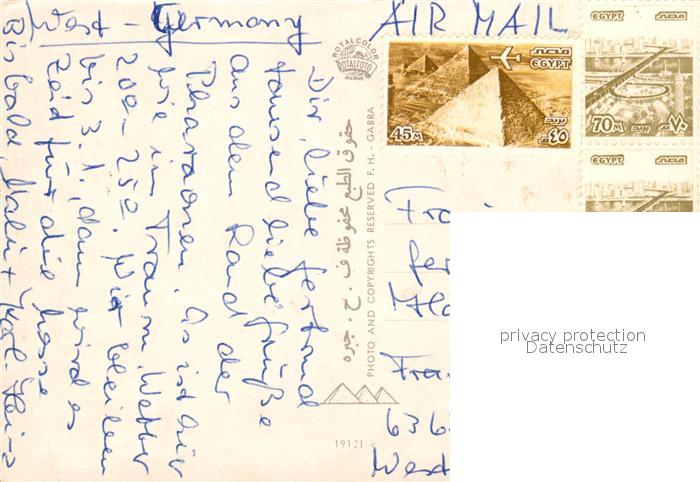 West - Germany
AIR MAIL
Dir, liebe Gertrud
tausend liebe Grüße
aus dem Land der
Pharaonen. Es ist hier
wie im Traum. Wetter
200 - 250. Wir bleiben
bis 3.1., dann wird es
Zeit für die
Bis bald, + Karl-Heinz
ROTALCOLOR
ROTALFOTO
MILANO
حقوق الطبع محفوظة ف . ح . جبره
PHOTO AND COPYRIGHTS RESERVED F. H. - GABRA
19121
مصر
EGYPT
بريد
45M
٤٥م
EGYPT مصر
بريد
70M ٧٠م
EGYPT مصر
privacy protection
Datenschutz
636
West